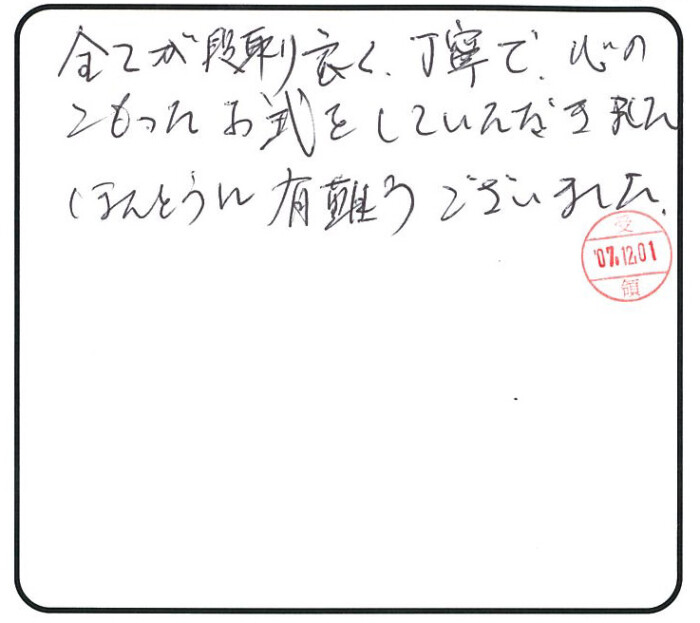 全てが段取り良く、丁寧で、心の
こもったお式をしていただきました
ほんとうに有難うございました。
受
'07.12.01
領